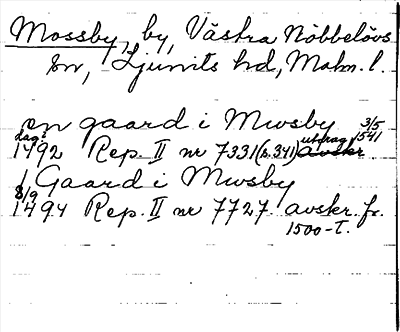 Mossby, by, Västra Nöbbelövs
sn, Ljunits hd, Malm. l.
en gaard i Mwsby 3/5
dag? utdrag 1541
1492 Rep. II nr 7331 (s. 341) avskr
1 Gaard i Mwsby
8/9
1494 Rep. II nr 7727. avskr. fr.
1500-t.